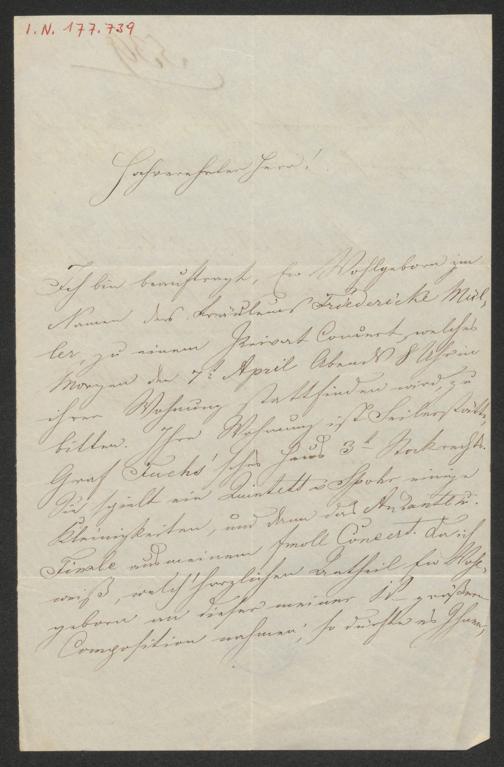 I.N. 177.739
Hochverehrter Herr!
Ich bin beauftragt, Ew Wohlgeborn im
Namen des Fräuleins Friedericke Mül,
ler, zu einem Privat Concert, welches
Morgen den 7t April Abends 8 Uhr in
ihrer Wohnung stattfinden wird, zu
bitten. Ihre Wohnung ist Seilerstätte,
Graf Fuchs'sches Haus 3t Stock rechts.
Sie spielt ein Quintett v Spohr, einige
Kleinigkeiten, und dann das Andante u.
Finale aus meinem fmoll Concert. Da ich
weiß, welch herzlichen Antheil Ew Wohl,
geborn an dieser meiner größern
Composition nahmen, so dachte es Ihnen,